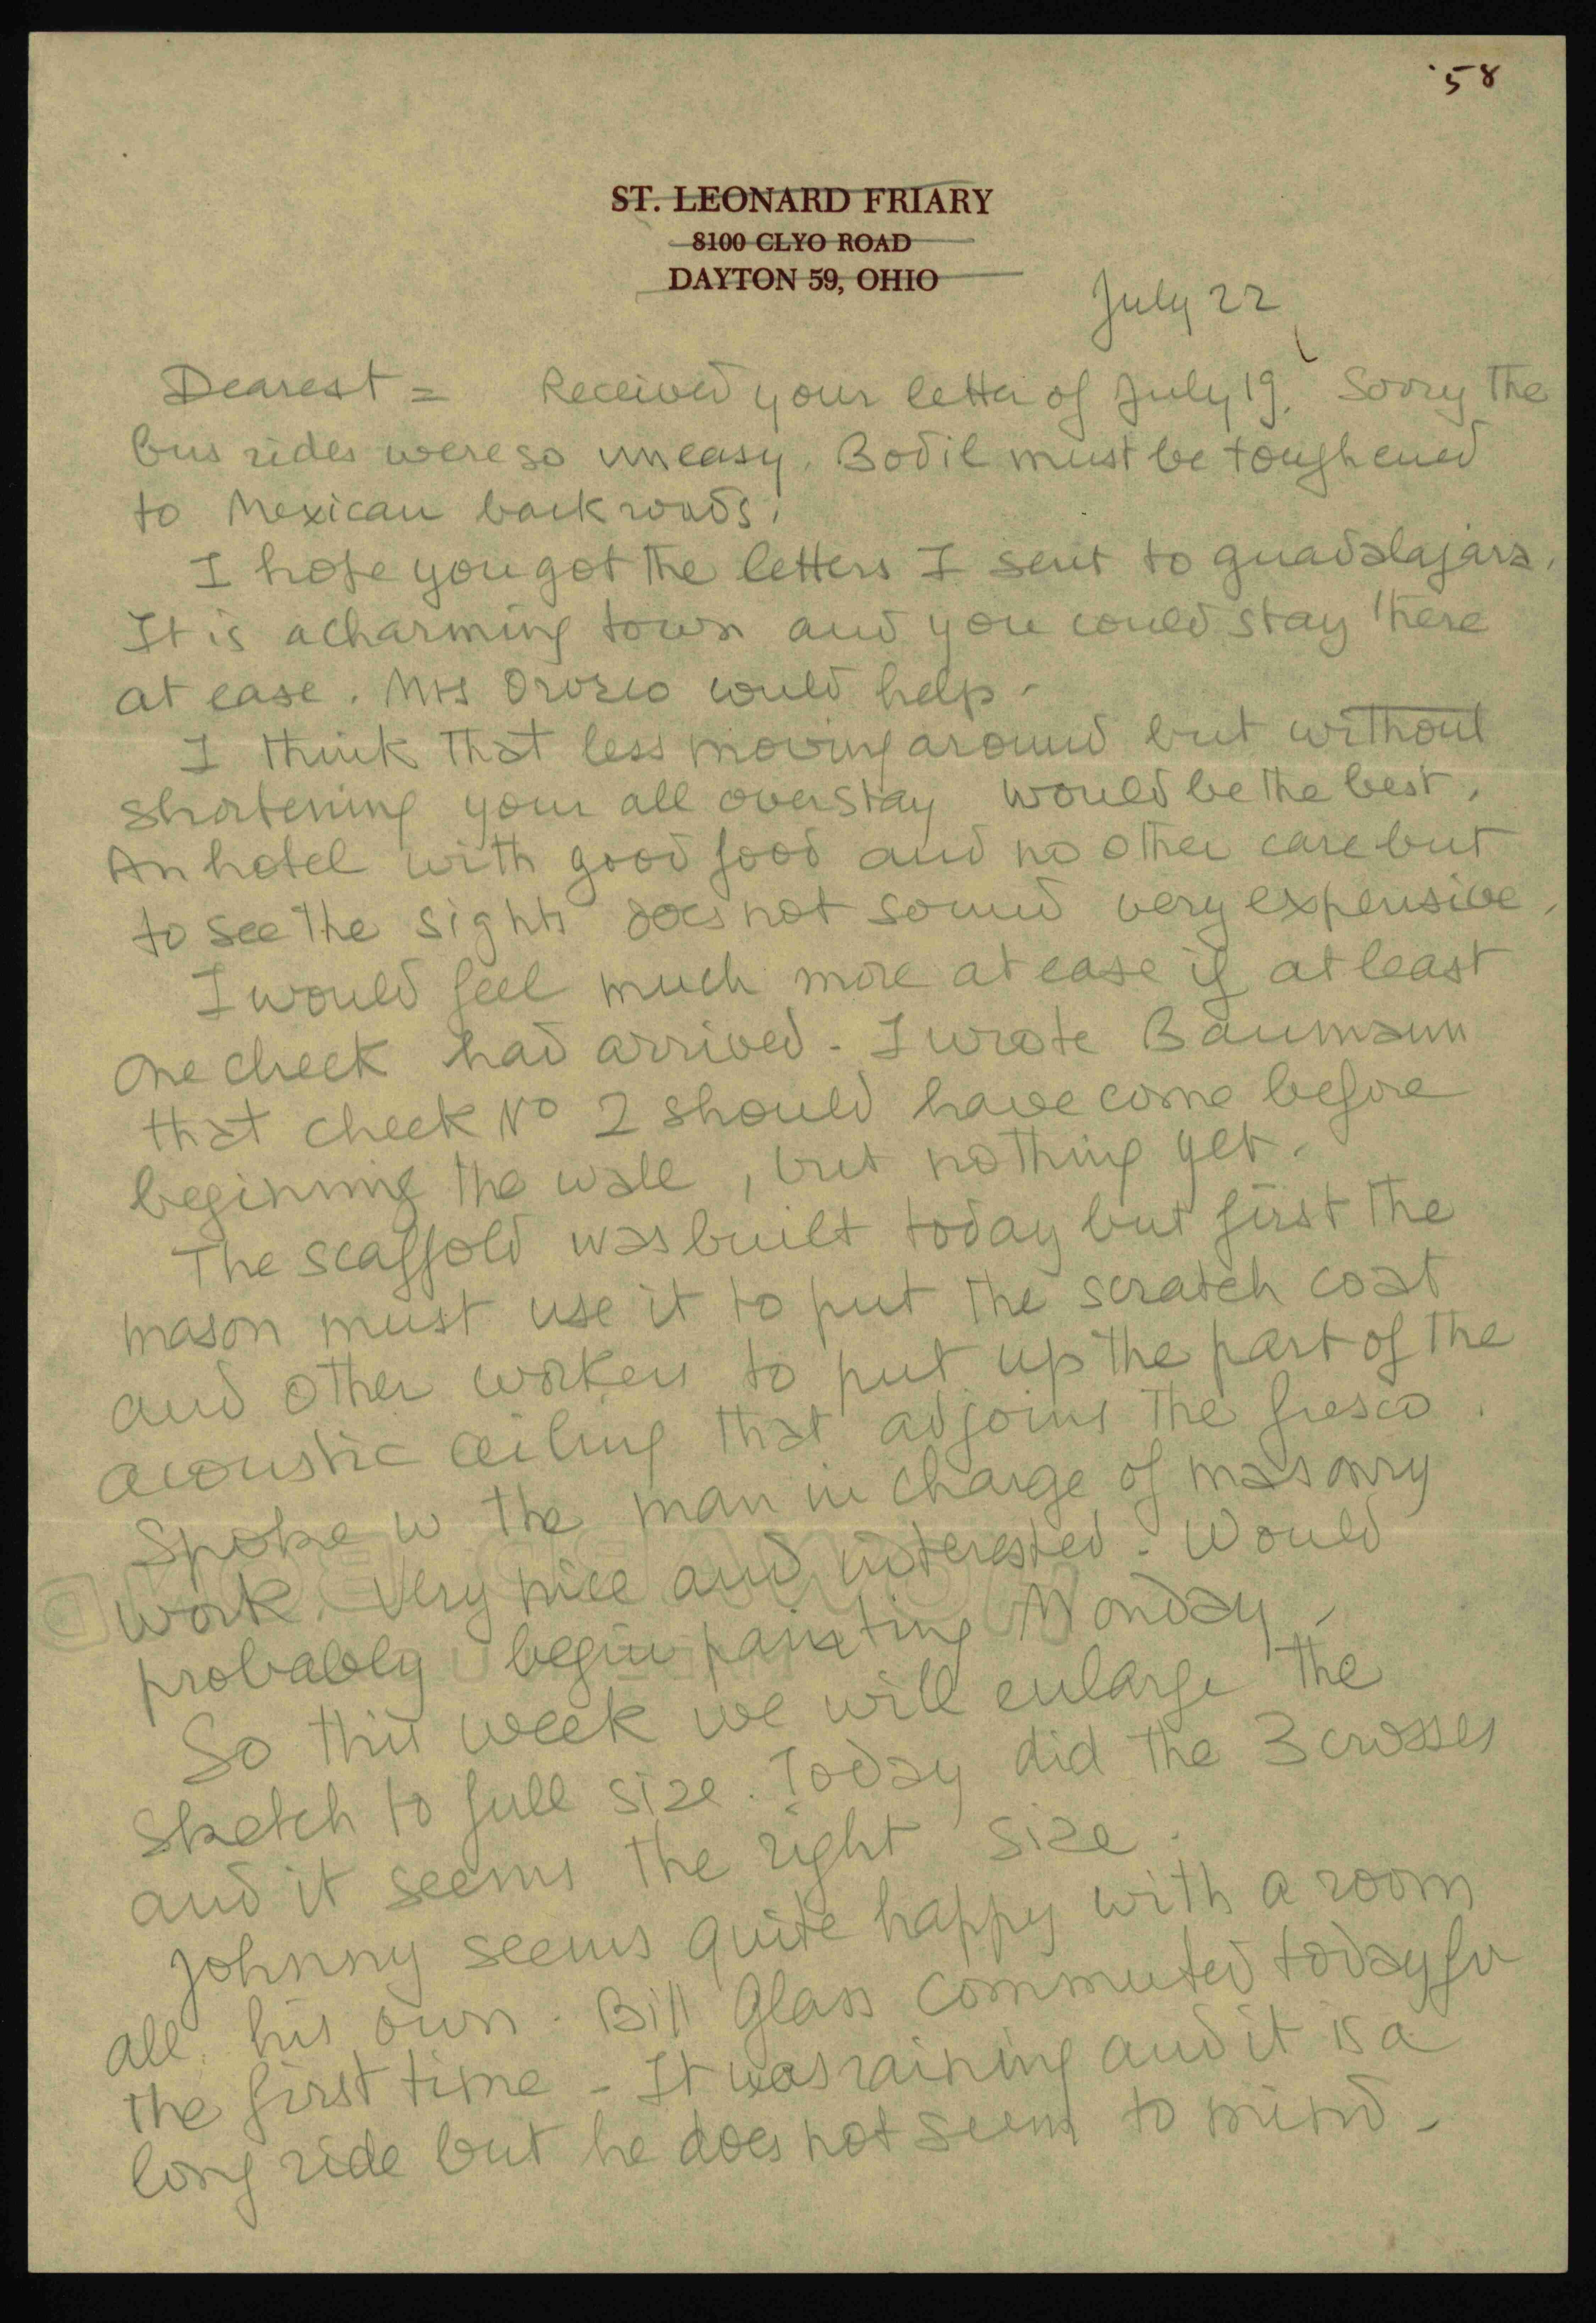 '58
ST. LEONARD FRIARY
8100 CLYO ROAD
DAYTON 59, OHIO
July 22
Dearest = Received your letter of July 19. Sorry the
bus rides were so uneasy. Bodil must be toughened
to Mexican back roads!
I hope you got the letters I sent to guadalajara.
It is a charming town and you could stay there
at ease. Mrs Orozco would help.
I think that less moving around but without
shortening your all over stay would be the best.
An hotel with good food and no other care but
to see the sights does not sound very expensive.
I would feel much more at ease if at least
one check had arrived - I wrote Baumann
that check No 2 should have come before
beginning the wall, but nothing yet.
The scaffold was built today but first the
mason must use it to put the scratch coat
and other workers to put up the part of the
acoustic ceiling that adjoins the fresco.
Spoke w the man in charge of masonry
work. Very nice and interested. Would
probably begin painting Monday.
So this week we will enlarge the
sketch to full size. Today did the 3 crosses
and it seems the right size.
Johnny seems quite happy with a room
all his own. Bill Glass commuted today for
the first time - It was raining and it is a
long ride but he does not seem to mind -